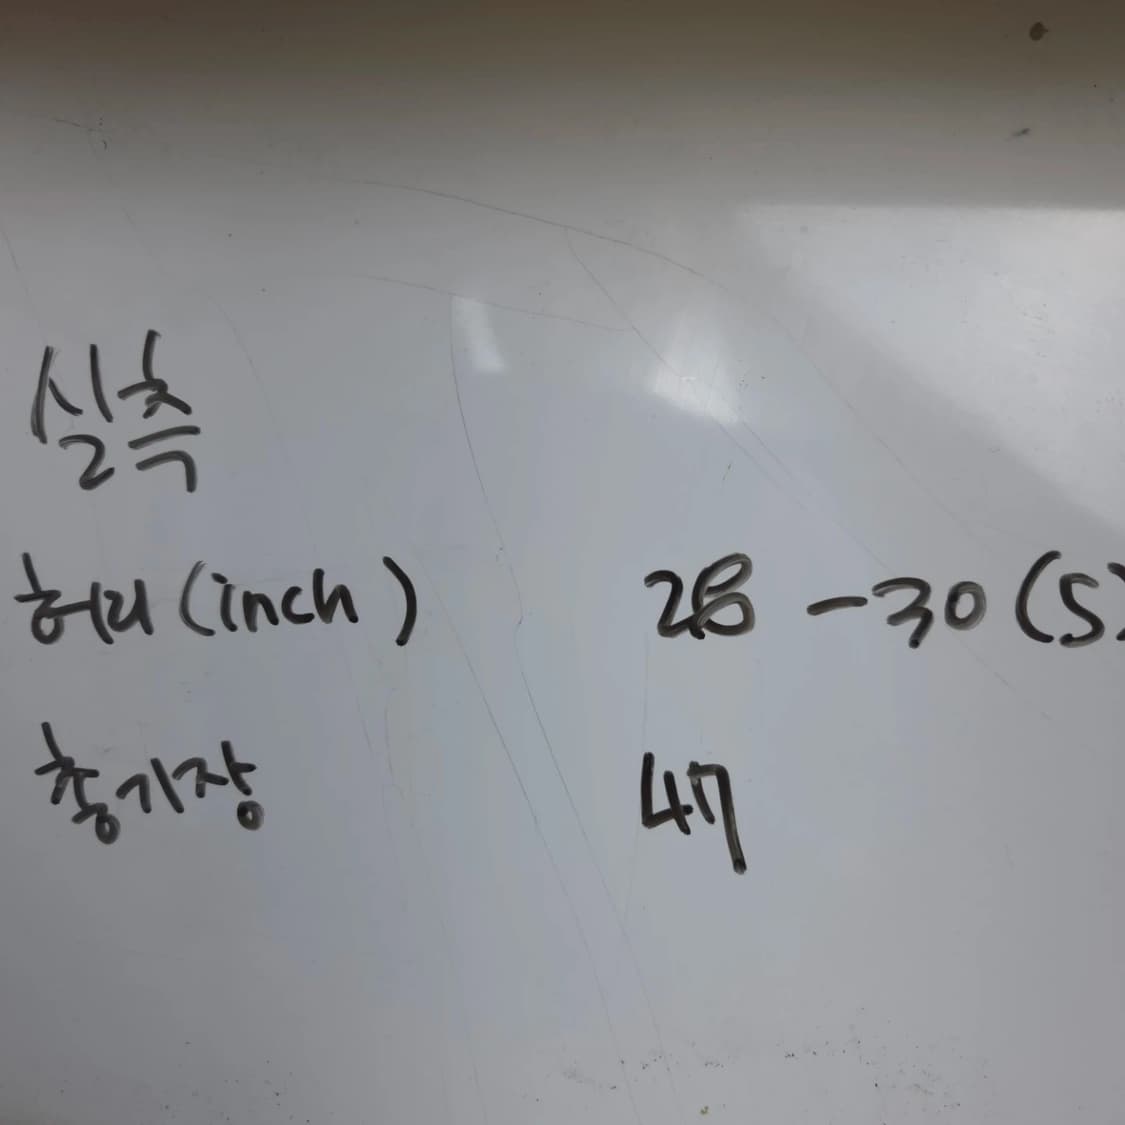 실측
허리 (inch) 28 - 30 (S)
총기장 47